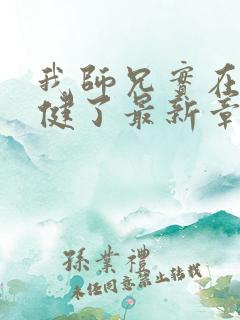 我師兄實在
健了最新章
孫業禮
未經同意禁止轉載